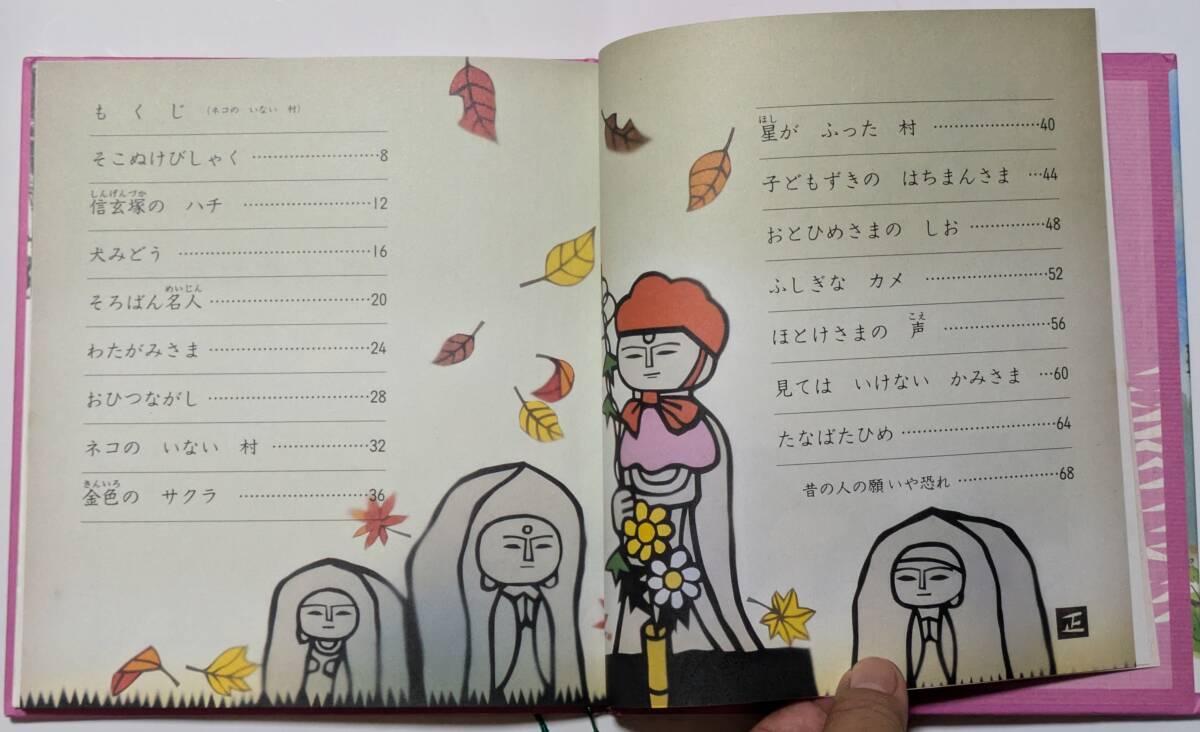 もくじ （ネコの いない 村）
そこぬけびしゃく ……………………8
しんげんづか
信玄塚の ハチ ……………………12
犬みどう ……………………16
めいじん
そろばん名人……………………20
わたがみさま……………………24
おひつながし……………………28
ネコの いない 村 ……………………32
きんいろ
金色の サクラ ……………………36
ほし
星が ふった 村 ……………………40
子どもずきの はちまんさま …44
おとひめさまの しお ……………48
ふしぎな カメ ……………………52
こえ
ほとけさまの 声 ……………………56
見ては いけない かみさま …60
たなばたひめ……………………64
昔の人の願いや恐れ……………………68
正